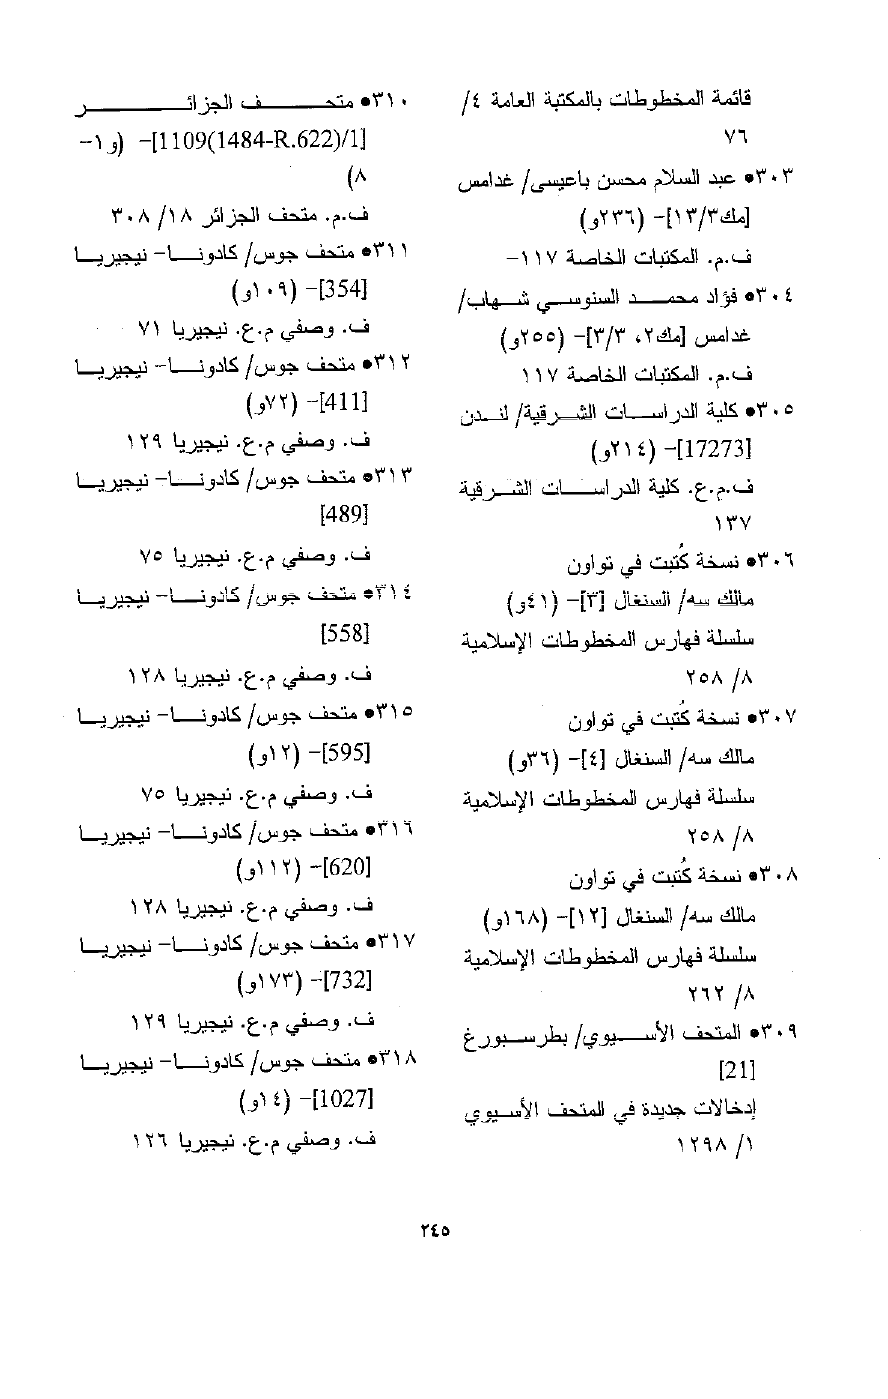 قائمة المخطوطات بالمكتبة العامة ٤/
٧٦
٣٠٣• عبد السلام محسن باعيسى/ غدامس
[مك١٣/٣]- (٢٣٦و)
ف.م. المكتبات الخاصة ١١٧-
٣٠٤• فؤاد محمد السنوسي شهاب/
غدامس [مك٢، ٣/٣]- (٢٥٥و)
ف.م. المكتبات الخاصة ١١٧
٣٠٥• كلية الدراسات الشرقية/ لندن
[17273]- (٢١٤و)
ف.م.ع. كلية الدراسات الشرقية
١٣٧
٣٠٦• نسخة كُتبت في تواون
مالك سه/ السنغال [٣]- (٤١و)
سلسلة فهارس المخطوطات الإسلامية
٨/ ٢٥٨
٣٠٧• نسخة كُتبت في تواون
مالك سه/ السنغال [٤]- (٣٦و)
سلسلة فهارس المخطوطات الإسلامية
٨/ ٢٥٨
٣٠٨• نسخة كُتبت في تواون
مالك سه/ السنغال [١٢]- (١٦٨و)
سلسلة فهارس المخطوطات الإسلامية
٨/ ٢٦٢
٣٠٩• المتحف الأسيوي/ بطرسبورغ
[21]
إدخالات جديدة في المتحف الأسيوي
١/ ١٢٩٨
٣١٠• متحف الجزائر
[1109(1484-R.622)/1]- (و١-
٨)
ف.م. متحف الجزائر ١٨/ ٣٠٨
٣١١• متحف جوس/ كادونا- نيجيريا
[354]- (١٠٩و)
ف. وصفي م.ع. نيجيريا ٧١
٣١٢• متحف جوس/ كادونا- نيجيريا
[411]- (٧٢و)
ف. وصفي م.ع. نيجيريا ١٢٩
٣١٣• متحف جوس/ كادونا- نيجيريا
[489]
ف. وصفي م.ع. نيجيريا ٧٥
٣١٤• متحف جوس/ كادونا- نيجيريا
[558]
ف. وصفي م.ع. نيجيريا ١٢٨
٣١٥• متحف جوس/ كادونا- نيجيريا
[595]- (١٢و)
ف. وصفي م.ع. نيجيريا ٧٥
٣١٦• متحف جوس/ كادونا- نيجيريا
[620]- (١١٢و)
ف. وصفي م.ع. نيجيريا ١٢٨
٣١٧• متحف جوس/ كادونا- نيجيريا
[732]- (١٧٣و)
ف. وصفي م.ع. نيجيريا ١٢٩
٣١٨• متحف جوس/ كادونا- نيجيريا
[1027]- (١٤و)
ف. وصفي م.ع. نيجيريا ١٢٦
٢٤٥